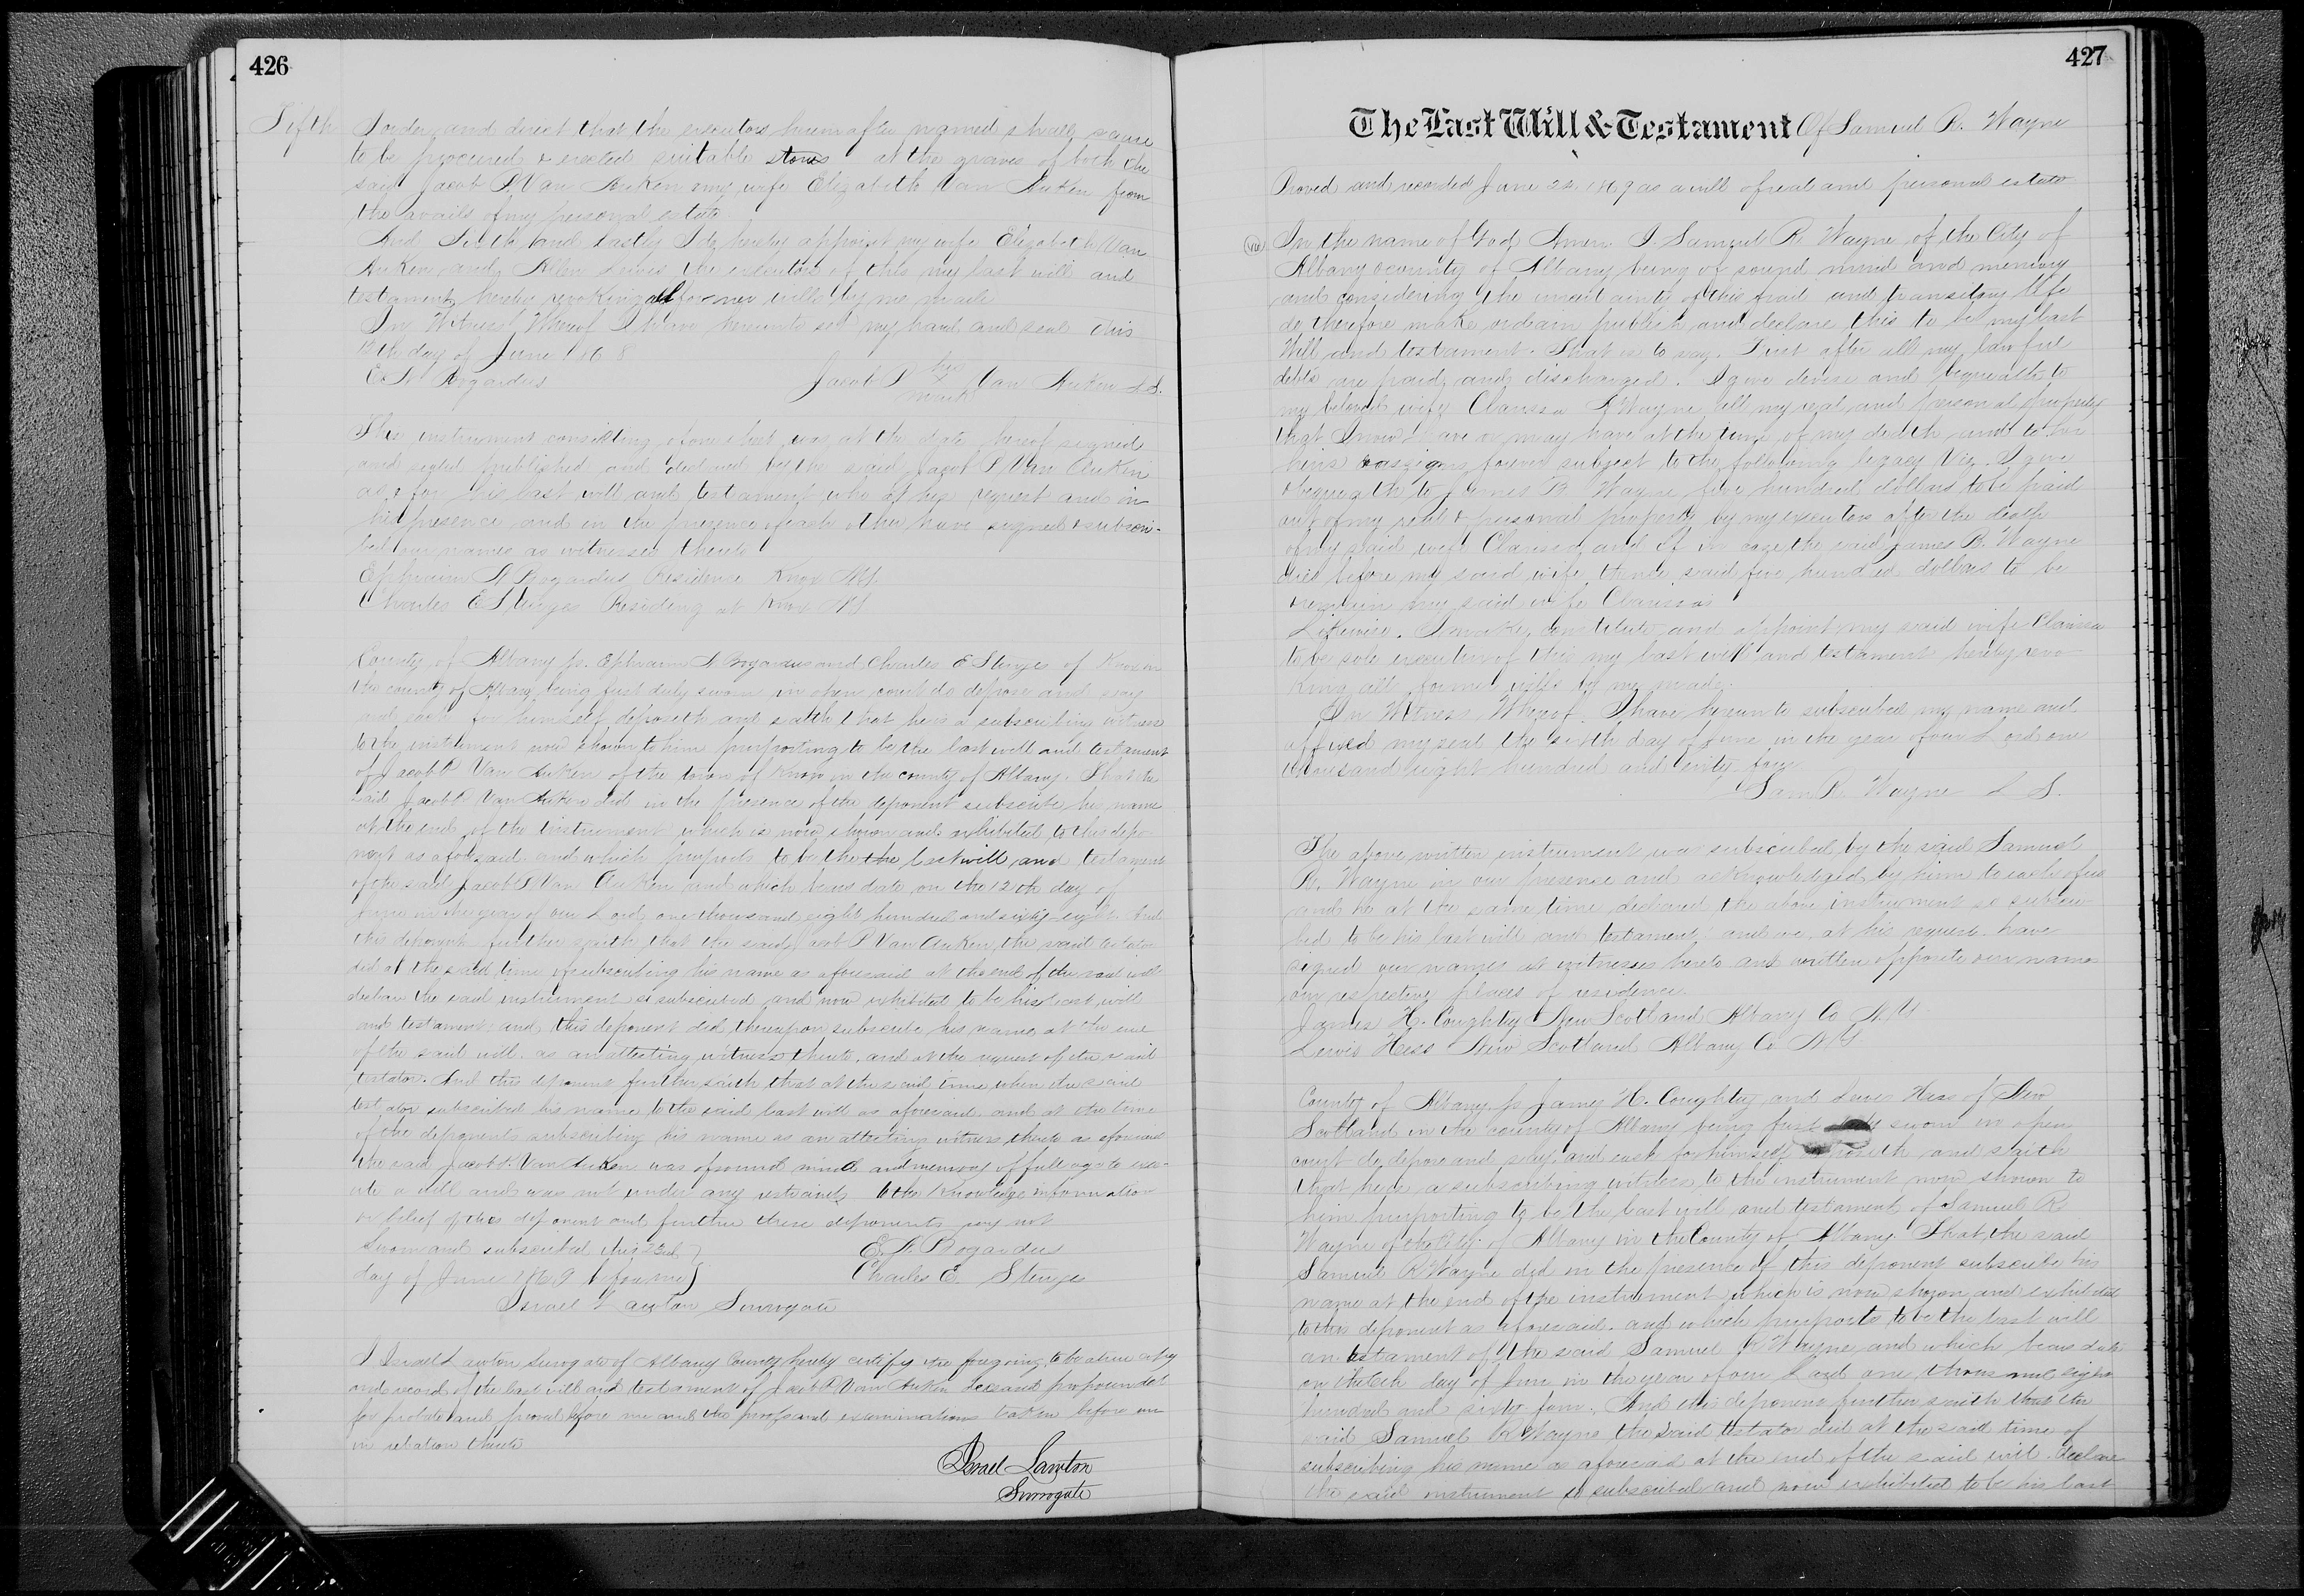 426
Fifth I order and direct that the executors hereinafter named shall cause
to be procured & erected suitable stones at the graves of both the
said Jacob P. Van Auken & my wife Elizabeth Van Auken from
the avails of my personal estate
And Sixth and lastly I do hereby appoint my wife Elizabeth Van
Auken and Allen Lewis the executors of this my last will and
testament hereby revoking all former wills by me made
In Witness Whereof I have hereunto set my hand and seal this
12th day of June 1868
E. N. Bogardus Jacob P his x mark Van Auken L.S.
This instrument consisting of one sheet was at the date hereof signed
and sealed published and declared by the said Jacob P Van Auken
as & for his last will and testament who at his request and in
his presence and in the presence of each other have signed & subscri-
bed our names as witnesses thereto
Ephraim N Bogardus Residence Knox NY.
Charles E Sturges Residing at Knox NY
County of Albany ss. Ephraim N Bogardus and Charles E Sturges of Knox in
the county of Albany being first duly sworn in open court do depose and say
and each for himself deposeth and saith that he is a subscribing witness
to the instrument now shown to him purporting to be the last will and testament
of Jacob P Van Auken of the town of Knox in the county of Albany. That the
said Jacob P Van Auken did in the presence of the deponent subscribe his name
at the end of the instrument which is now shown and exhibited to this depo-
nent as aforesaid and which purports to be the the last will and testament
of the said Jacob P Van Auken and which bears date on the 12th day of
June in the year of our Lord one thousand eight hundred and sixty-eight And
this deponent further saith that the said Jacob P Van Auken the said testator
did at the said time of subscribing his name as aforesaid at the end of the said will
declare the said instrument so subscribed and now exhibited to be his last will
and testament: and this deponent did thereupon subscribe his name at the end
of the said will. as an attesting witness thereto, and at the request of the said
testator. And this deponent further saith that at the said time when the said
testator subscribed his name to the said last will as aforesaid and at the time
of the deponents subscribing his name as an attesting witness thereto as aforesaid
the said Jacob P. Van Auken was of sound mind and memory of full age to exe-
cute a will and was not under any restraint to the knowledge information
or belief of this deponent and further these deponents say not
Sworn and subscribed this 22nd E. N. Bogardus
day of June 1869 before me Charles E. Sturges
Israel Lawton Surrogate
I Israel Lawton Surrogate of Albany County hereby certify the foregoing to be a true copy
and record of the last will and testament of Jacob P Van Auken deceased propounded
for probate and proved before me and the proofs and examinations taken before me
in relation thereto
Israel Lawton
Surrogate
427
The Last Will & Testament Of Samuel R. Wayne
Proved and recorded June 22 1869 as a will of real and personal estate
In the name of God Amen. I. Samuel R. Wayne of the City of
Albany & county of Albany being of sound mind and memory
and considering the uncertainty of this frail and transitory life
do therefore make ordain publish and declare this to be my last
Will and testament. That is to say. First after all my lawful
debts are paid and discharged. I give devise and bequeath to
my beloved wife Clarissa Wayne all my real and personal property
that I now have or may have at the time of my death and to her
heirs & assigns forever subject to the following legacy Viz. I give
& bequeath to James B Wayne five hundred dollars to be paid
out of my real & personal property by my executors after the death
of my said wife Clarissa, and if in case the said James B. Wayne
dies before my said wife then said five hundred dollars to be
remain my said wife Clarissas
Likewise. I make, constitute and appoint my said wife Clarissa
to be sole executrix of this my last will and testament hereby revo-
king all former wills by me made.
In Witness Whereof. I have hereunto subscribed my name and
affixed my seal the sixth day of June in the year of our Lord one
thousand eight hundred and sixty-four
Sam R. Wayne L S.
The above written instrument was subscribed by the said Samuel
R. Wayne in our presence and acknowledged by him to each of us
and he at the same time declared the above instrument so subscri-
bed to be his last will and testament, and we at his request have
signed our names as witnesses hereto and written opposite our names
our respective places of residence.
James H. Coughtry New Scotland Albany Co N.Y.
Lewis Hess New Scotland Albany Co NY.
County of Albany ss James H. Coughtry and Lewis Hess of New
Scotland in the county of Albany being first duly sworn in open
court do depose and say: and each for himself deposeth and saith
that he is a subscribing witness to the instrument now shown to
him purporting to be the last will and testament of Samuel R.
Wayne of the City of Albany in the County of Albany. That the said
Samuel R Wayne did in the presence of this deponent subscribe his
name at the end of the instrument which is now shown and exhibited
to this deponent as aforesaid. and which purports to be the last will
an testament of the said Samuel R Wayne and which bears date
on the 6th day of June in the year of our Lord one thousand eight
hundred and sixty four. And this deponent further saith that the
said Samuel R Wayne the said testator did at the said time of
subscribing his name as aforesaid at the end of the said will. declare
the said instrument so subscribed and now exhibited to be his last